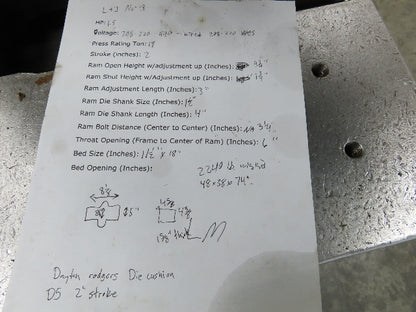 L+J No-3
HP: 1.5
Voltage: 208-220 440 - wired 208-220
Press Rating Ton: 14
Stroke (Inches): 2
Ram Open Height w/Adjustment up (Inches): 3 3/4"
Ram Shut Height w/Adjustment up (Inches): 1 3/4"
Ram Adjustment Length (Inches): 3"
Ram Die Shank Size (Inches):
Ram Die Shank Length (Inches): 4"
Ram Bolt Distance (Center to Center) (Inches): 3 1/4
Throat Opening (Frame to Center of Ram) (Inches): 6"
Bed Size (Inches): 11 1/2" x 18"
Bed Opening (Inches):
2240 lb w/skid
48x58x74"
5"
Dayton rodgers Die cushion
D5 2" stroke